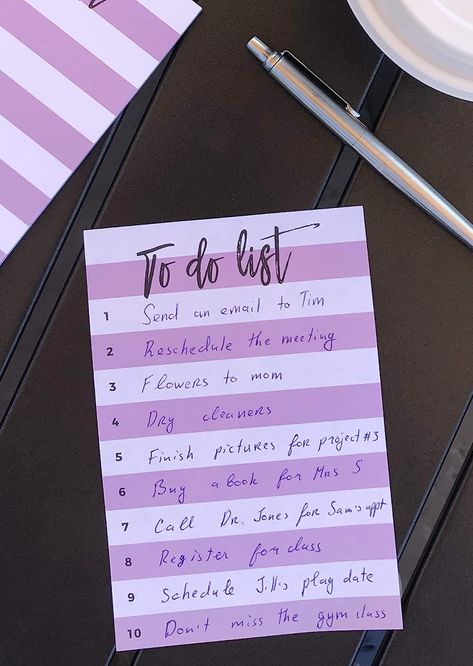 To do list
1 Send an email to Tim
2 Reschedule the meeting
3 Flowers to mom
4 Dry cleaners
5 Finish pictures for project #3
6 Buy a book for Mrs. S
7 Call Dr. Jones for Sam's appt
8 Register for class
9 Schedule Jill's play date
10 Don't miss the gym class